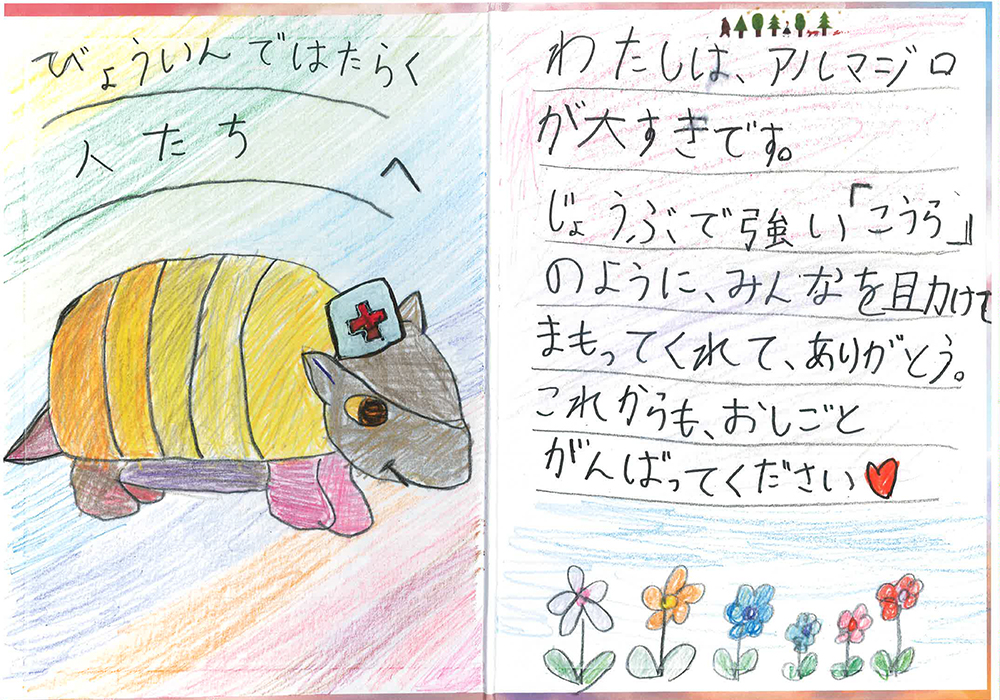 びょういんではたらく
人たちへ
わたしは、アルマジロ
が大すきです。
じょうぶで強い「こうら」
のように、みんなを助けて
まもってくれて、ありがとう。
これからも、おしごと
がんばってください